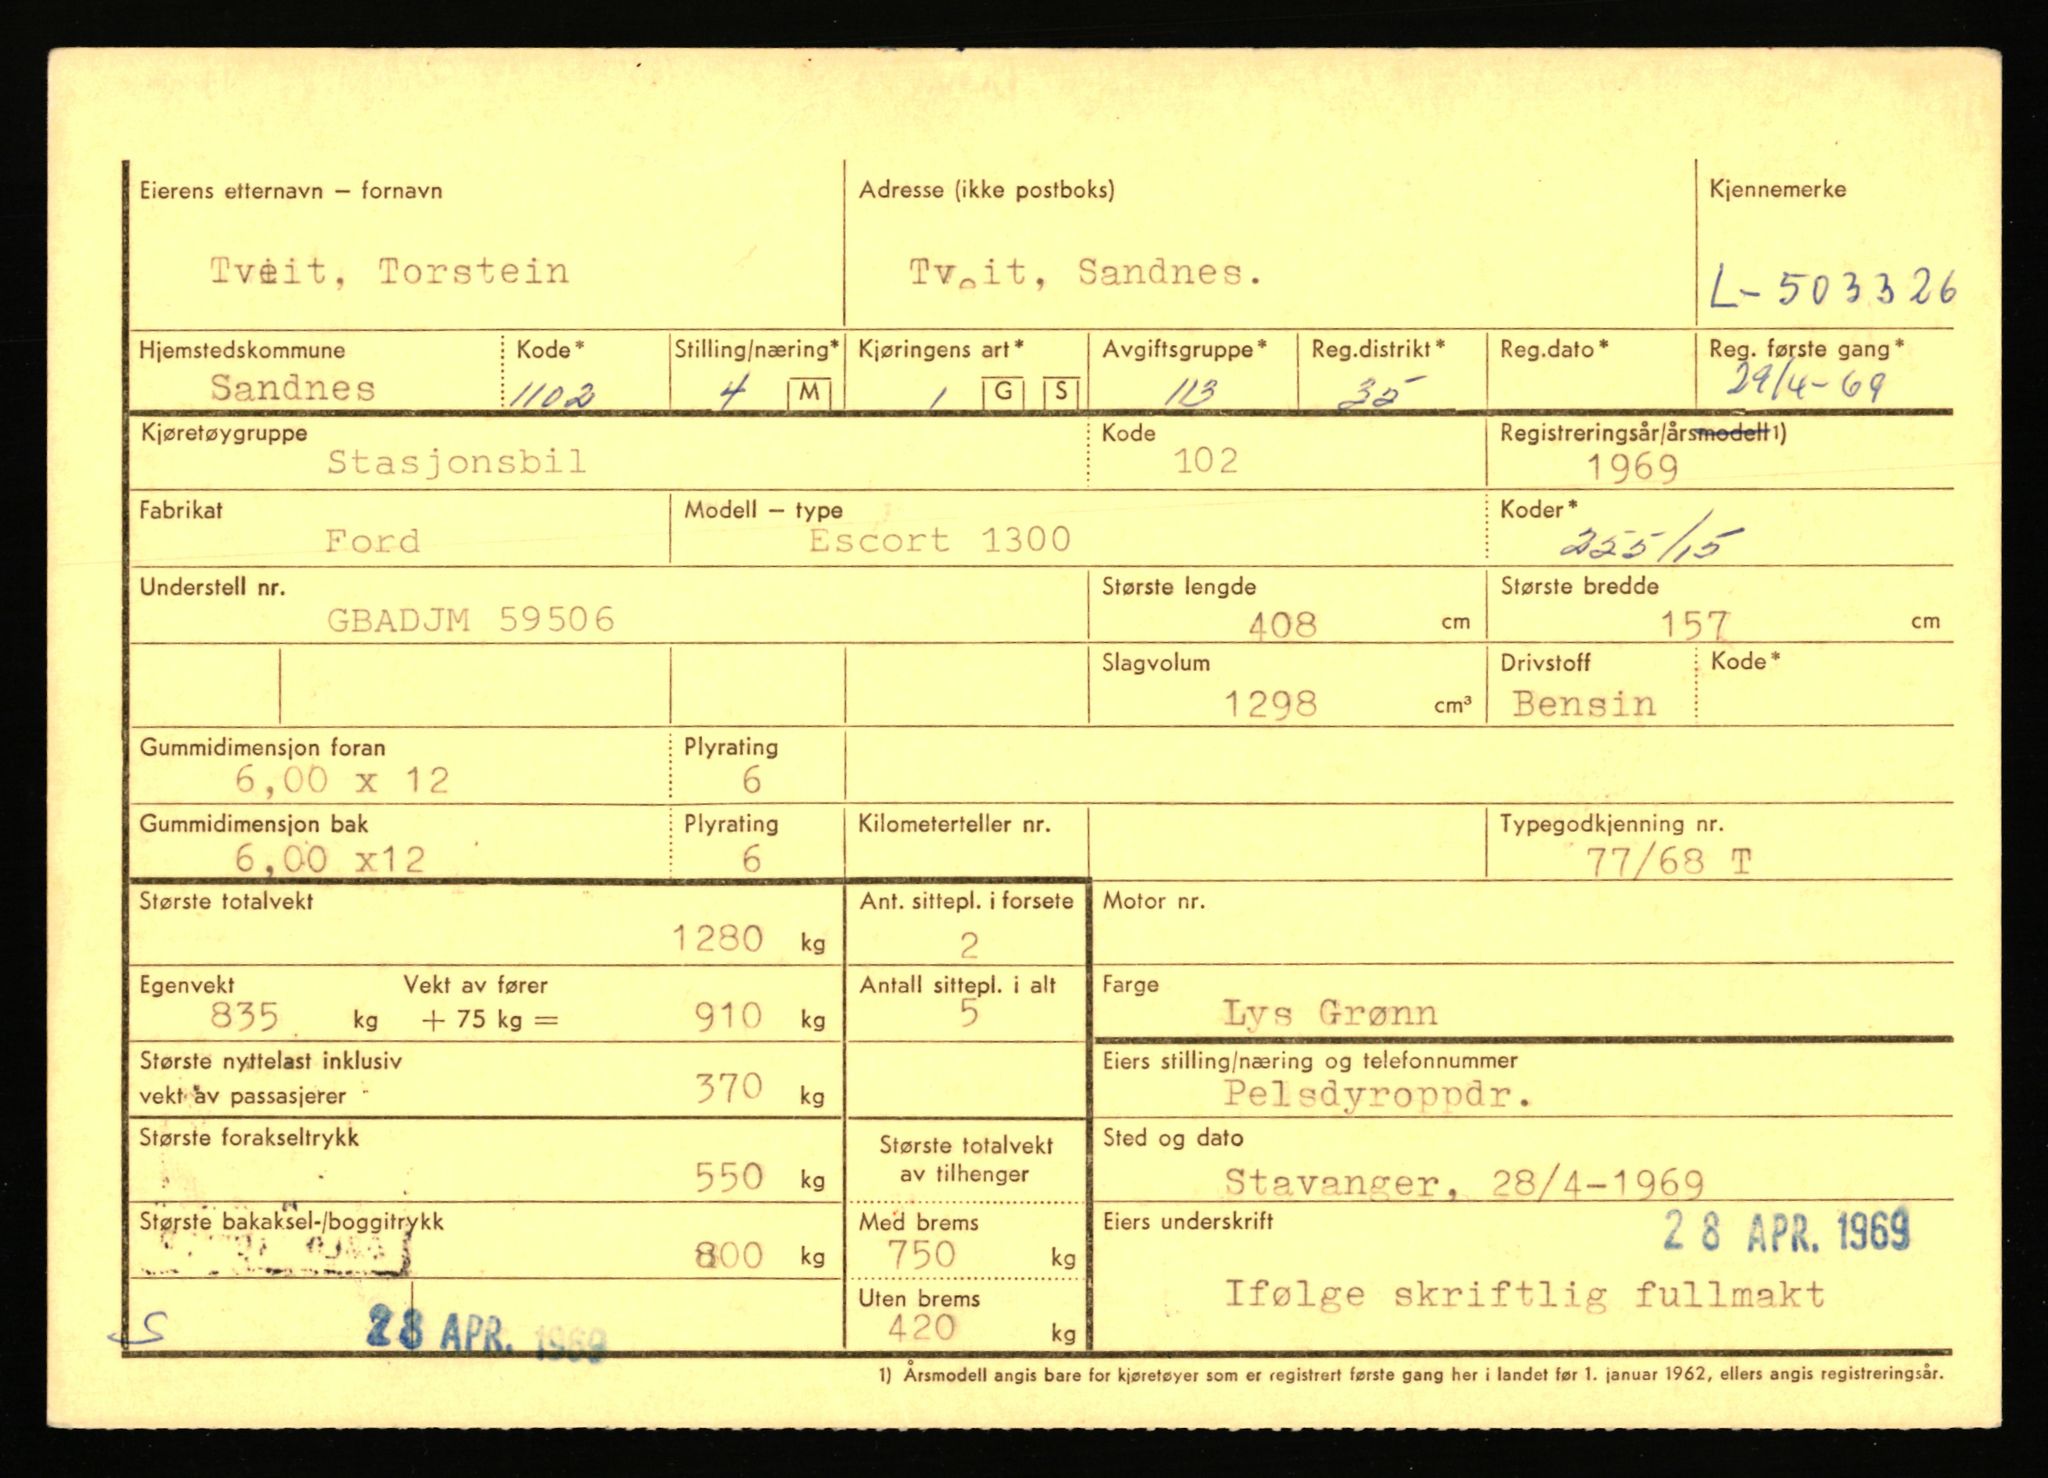 Eierens etternavn – fornavn Adresse (ikke postboks) Kjennemerke
Tveit, Torstein Tveit, Sandnes. L-503326
Hjemstedskommune Kode* Stilling/næring* Kjøringens art* Avgiftsgruppe* Reg.distrikt* Reg.dato* Reg. første gang*
Sandnes 1102 4 M 1 G S 113 35 29/4-69
Kjøretøygruppe Kode Registreringsår/årsmodell 1)
Stasjonsbil 102 1969
Fabrikat Modell – type Koder*
Ford Escort 1300 255/15
Understell nr. Største lengde Største bredde
GBADJM 59506 408 cm 157 cm
Slagvolum Drivstoff Kode*
1298 cm³ Bensin
Gummidimensjon foran Plyrating
6,00 x 12 6
Gummidimensjon bak Plyrating Kilometerteller nr. Typegodkjenning nr.
6,00 x12 6 77/68 T
Største totalvekt Ant. sittepl. i forsete Motor nr.
1280 kg 2
Egenvekt Vekt av fører Antall sittepl. i alt Farge
835 kg + 75 kg = 910 kg 5 Lys Grønn
Største nyttelast inklusiv Eiers stilling/næring og telefonnummer
vekt av passasjerer 370 kg Pelsdyroppdr.
Største forakseltrykk Største totalvekt Sted og dato
550 kg av tilhenger Stavanger, 28/4-1969
Største bakaksel-/boggitrykk Med brems Eiers underskrift 28 APR. 1969
800 kg 750 kg
Uten brems Ifølge skriftlig fullmakt
28 APR. 1969 420 kg
1) Årsmodell angis bare for kjøretøyer som er registrert første gang her i landet før 1. januar 1962, ellers angis registreringsår.